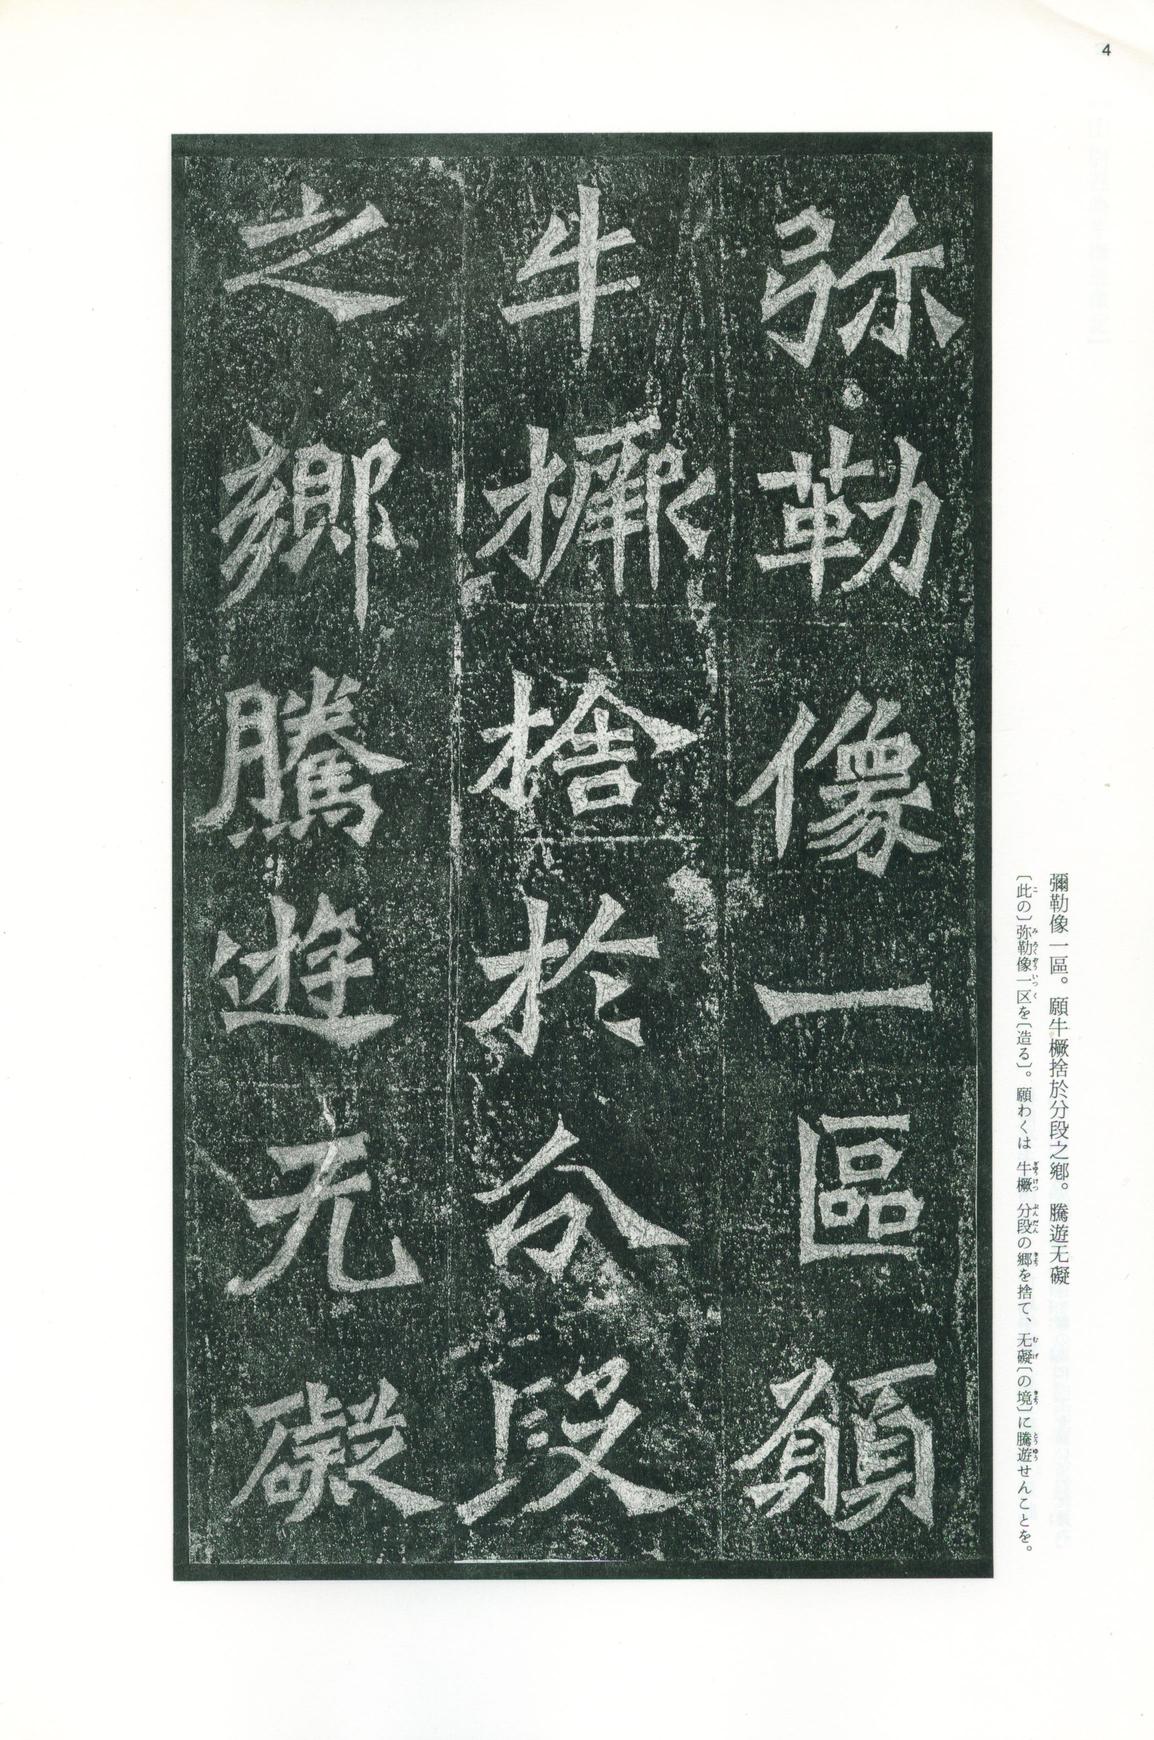 4
弥勒像一區願
牛橛捨於分段
之鄉騰遊无礙
彌勒像一區。願牛橛捨於分段之鄕。騰遊无礙
〔此の〕弥勒像一区を〔造る〕。願わくは 牛橛 分段の郷を捨て、无礙〔の境〕に騰遊せんことを。